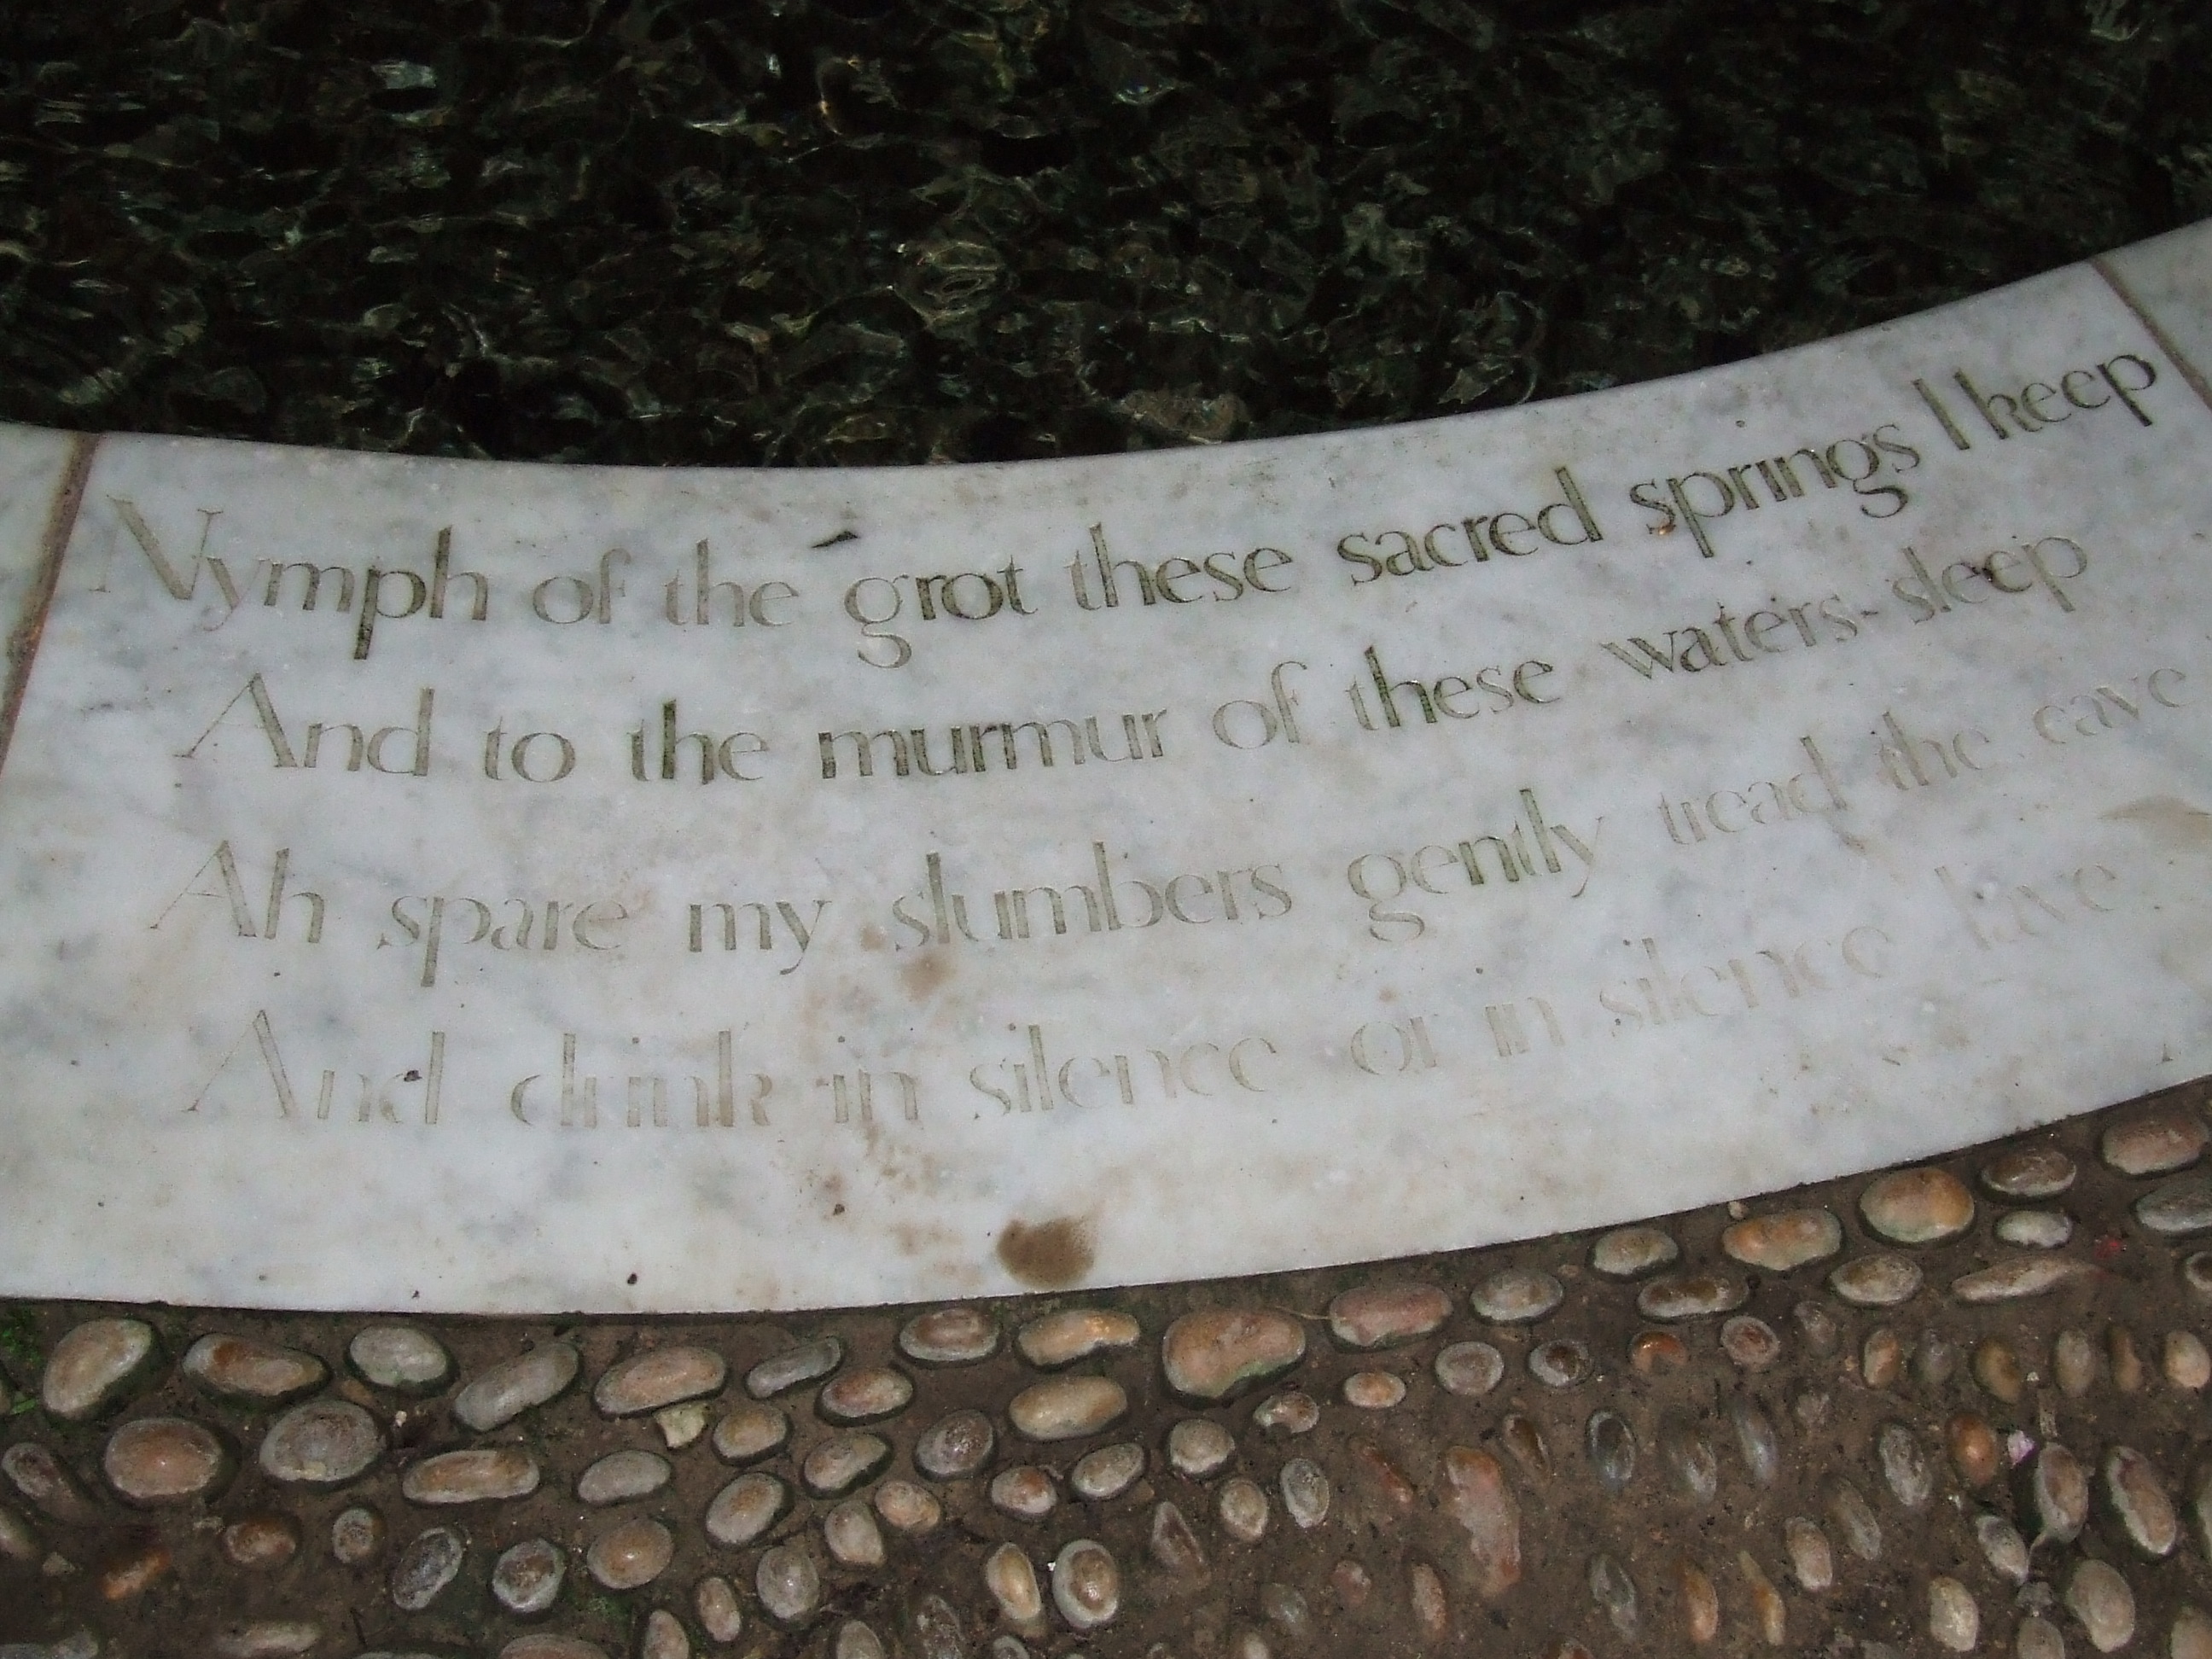 Nymph of the grot these sacred springs I keep
And to the murmur of these waters-sleep
Ah spare my slumbers gently tread the cave
And drink in silence or in silence lave